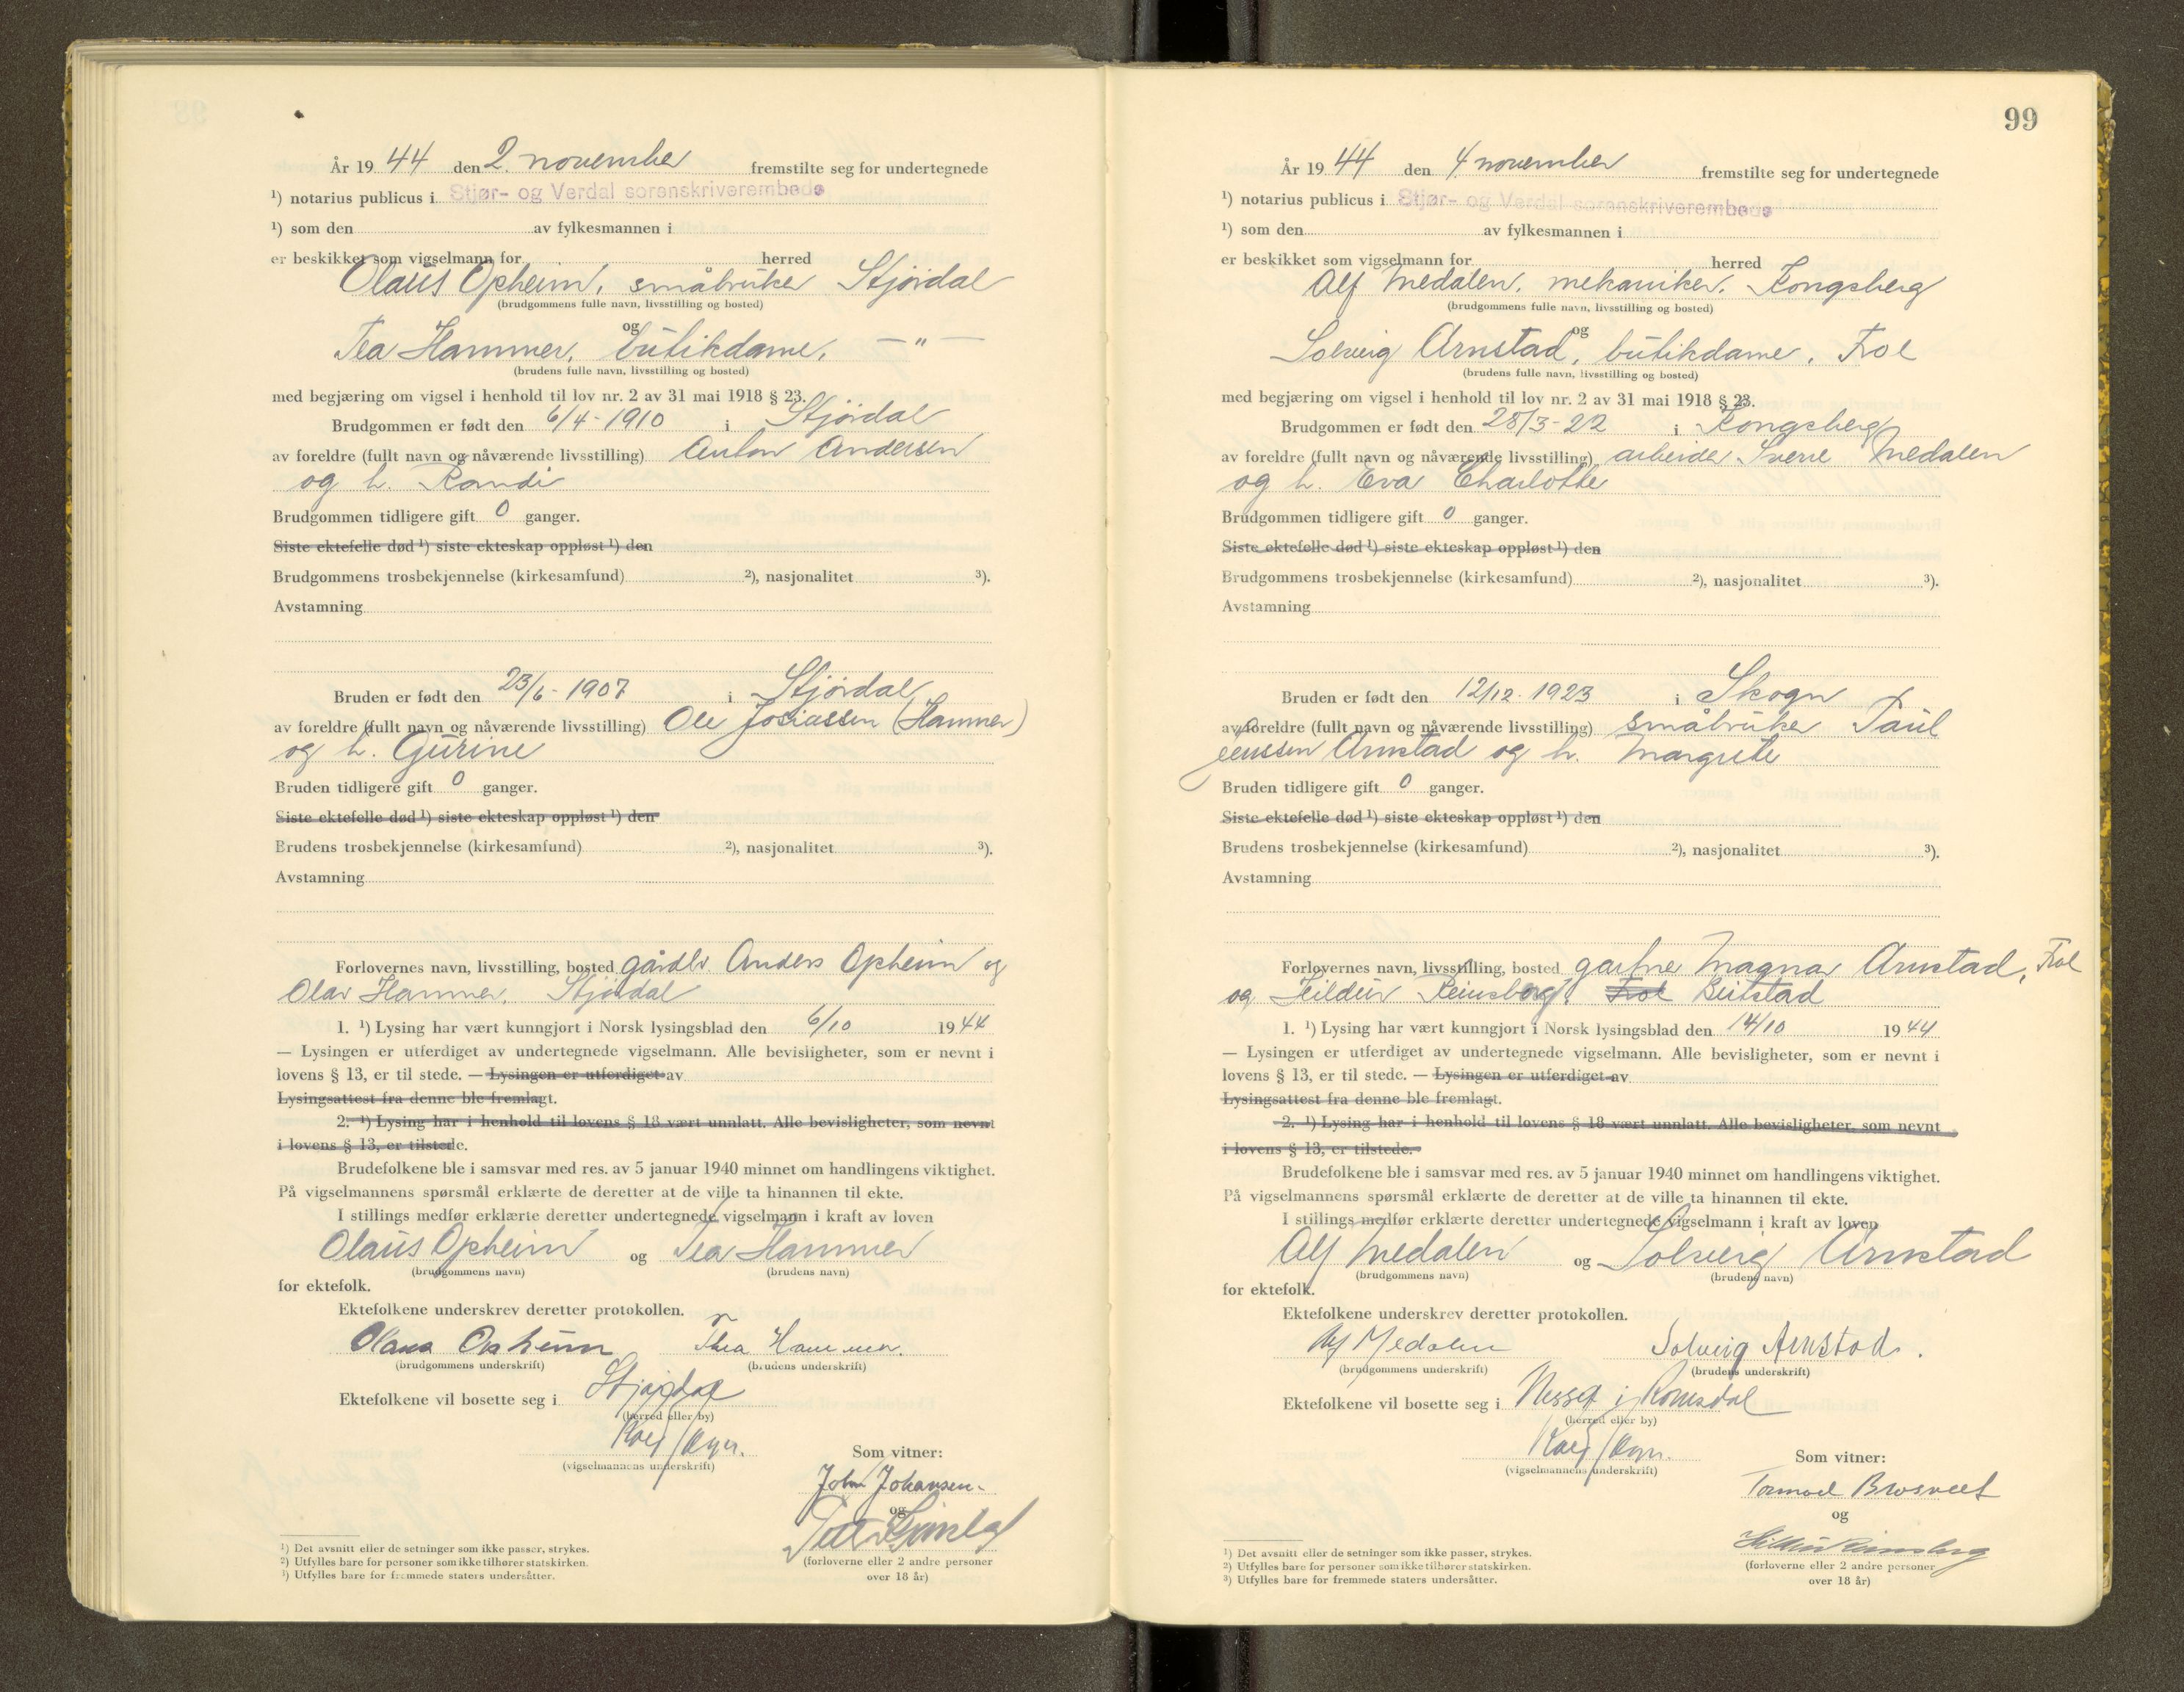 År 19 44 den 2. november fremstilte seg for undertegnede
¹) notarius publicus i Stjør- og Verdal sorenskriverembede
¹) som den av fylkesmannen i
er beskikket som vigselmann for herred
Olaus Opheim, småbruker Stjørdal
(brudgommens fulle navn, livsstilling og bosted)
og
Tea Hammer, butikdame, — " —
(brudens fulle navn, livsstilling og bosted)
med begjæring om vigsel i henhold til lov nr. 2 av 31 mai 1918 § 23.
Brudgommen er født den 6/4 - 1910 i Stjørdal
av foreldre (fullt navn og nåværende livsstilling) Anton Andersen
og h. Randi
Brudgommen tidligere gift 0 ganger.
Siste ektefelle død ¹) siste ekteskap oppløst ¹) den
Brudgommens trosbekjennelse (kirkesamfund) ²), nasjonalitet ³).
Avstamning
Bruden er født den 23/6 - 1907 i Stjørdal
av foreldre (fullt navn og nåværende livsstilling) Ole Josiassen (Hammer)
og h. Gurine
Bruden tidligere gift 0 ganger.
Siste ektefelle død ¹) siste ekteskap oppløst ¹) den
Brudens trosbekjennelse (kirkesamfund) ²), nasjonalitet ³).
Avstamning
Forlovernes navn, livsstilling, bosted gårdbr. Anders Opheim og
Olav Hammer, Stjørdal
1. ¹) Lysing har vært kunngjort i Norsk lysingsblad den 6/10 19 44
— Lysingen er utferdiget av undertegnede vigselmann. Alle bevisligheter, som er nevnt i
lovens § 13, er til stede. — Lysingen er utferdiget av
Lysingsattest fra denne ble fremlagt.
2. ¹) Lysing har i henhold til lovens § 18 vært unnlatt. Alle bevisligheter, som nevnt
i lovens § 13, er tilstede.
Brudefolkene ble i samsvar med res. av 5 januar 1940 minnet om handlingens viktighet.
På vigselmannens spørsmål erklærte de deretter at de ville ta hinannen til ekte.
I stillings medfør erklærte deretter undertegnede vigselmann i kraft av loven
Olaus Opheim og Tea Hammer
(brudgommens navn) (brudens navn)
for ektefolk.
Ektefolkene underskrev deretter protokollen.
Olaus Opheim Thea Hammer.
(brudgommens underskrift) (brudens underskrift)
Ektefolkene vil bosette seg i Stjørdal
(herred eller by)
(vigselmannens underskrift)
Som vitner:
John Johansen.
og
(forloverne eller 2 andre personer
over 18 år)
¹) Det avsnitt eller de setninger som ikke passer, strykes.
²) Utfylles bare for personer som ikke tilhører statskirken.
³) Utfylles bare for fremmede staters undersåtter.
99
År 19 44 den 4. november fremstilte seg for undertegnede
¹) notarius publicus i Stjør- og Verdal sorenskriverembede
¹) som den av fylkesmannen i
er beskikket som vigselmann for herred
Alf Medalen, mekaniker, Kongsberg
(brudgommens fulle navn, livsstilling og bosted)
og
Solveig Arnstad, butikdame, Frol
(brudens fulle navn, livsstilling og bosted)
med begjæring om vigsel i henhold til lov nr. 2 av 31 mai 1918 § 23.
Brudgommen er født den 28/3 - 22 i Kongsberg
av foreldre (fullt navn og nåværende livsstilling) arbeider Sverre Medalen
og h. Eva Charlotte
Brudgommen tidligere gift 0 ganger.
Siste ektefelle død ¹) siste ekteskap oppløst ¹) den
Brudgommens trosbekjennelse (kirkesamfund) ²), nasjonalitet ³).
Avstamning
Bruden er født den 12/12. 1923 i Skogn
av foreldre (fullt navn og nåværende livsstilling) småbruker Paul
Jenssen Arnstad og h. Margrete
Bruden tidligere gift 0 ganger.
Siste ektefelle død ¹) siste ekteskap oppløst ¹) den
Brudens trosbekjennelse (kirkesamfund) ²), nasjonalitet ³).
Avstamning
Forlovernes navn, livsstilling, bosted gartner Magnar Arnstad, Frol
og Hildur Reinsberg, Frol Beitstad
1. ¹) Lysing har vært kunngjort i Norsk lysingsblad den 14/10 19 44
— Lysingen er utferdiget av undertegnede vigselmann. Alle bevisligheter, som er nevnt i
lovens § 13, er til stede. — Lysingen er utferdiget av
Lysingsattest fra denne ble fremlagt.
2. ¹) Lysing har i henhold til lovens § 18 vært unnlatt. Alle bevisligheter, som nevnt
i lovens § 13, er tilstede.
Brudefolkene ble i samsvar med res. av 5 januar 1940 minnet om handlingens viktighet.
På vigselmannens spørsmål erklærte de deretter at de ville ta hinannen til ekte.
I stillings medfør erklærte deretter undertegnede vigselmann i kraft av loven
Alf Medalen og Solveig Arnstad
(brudgommens navn) (brudens navn)
for ektefolk.
Ektefolkene underskrev deretter protokollen.
Alf Medalen Solveig Arnstad.
(brudgommens underskrift) (brudens underskrift)
Ektefolkene vil bosette seg i Nesset i Romsdal
(herred eller by)
(vigselmannens underskrift)
Som vitner:
Tormod Brosveet
og
Hildur Reinsberg
(forloverne eller 2 andre personer
over 18 år)
¹) Det avsnitt eller de setninger som ikke passer, strykes.
²) Utfylles bare for personer som ikke tilhører statskirken.
³) Utfylles bare for fremmede staters undersåtter.